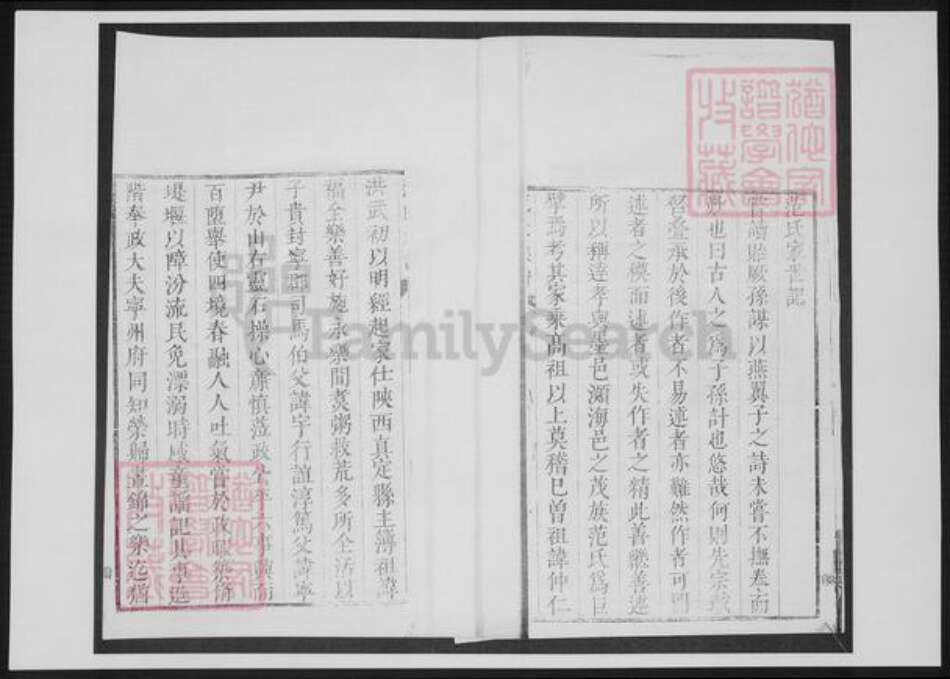 范氏家世記
嘗讀貽厥孫謀以燕翼子之詩未嘗不撫卷而
也曰古人之為子孫計也悠哉何則先宗
於後作者不易述者亦難然作者可
述者之穢而述者或失作者之精此善繼善述
所以稱達孝與
邑瀕海邑之茂族范氏為巨
擘焉考其家乘高祖以上莫稽已曾祖諱仲仁
洪武初以明經起家仕陝西真定縣主簿祖諱
福全樂善好施永樂間煮粥救荒多所全活以
子貴封寧郡司馬伯父諱宇行誼淳篤父諱寧
尹於山右靈石操心廉慎蒞政公平六事興而
百墮舉使四境春融人人吐氣嘗於政暇築
堤堰以障汾流民免漂溺時咸童謠記其事
階奉政大夫寧州府同知榮歸晝錦之樂
FamilySearch
譜學會
收藏